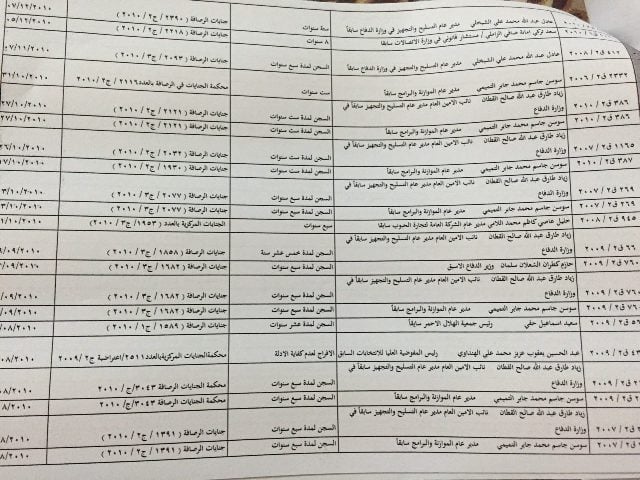 عادل عبد الله محمد علي الشيخلي مدير عام التسليح والتجهيز في وزارة الدفاع سابقاً ستة سنوات جنايات الرصافة ( ٢٣٩٠ / ج٢ / ٢٠١٠ ) ٠٧/١٢/٢٠١٠
سعد تركي امانة صافي الزاملي / مستشار قانوني في وزارة الاتصالات سابقاً ٨ سنوات جنايات الرصافة ( ٢٢١٨ / ج٢ / ٢٠١٠ ) ٠٥/١٢/٢٠١٠
٤١٢ ق٢ / ٢٠٠٨ عادل عبد الله محمد علي الشيخلي مدير عام التسليح والتجهيز في وزارة الدفاع سابقاً السجن لمدة سبع سنوات جنايات الرصافة ( ٢٠٩٣ / ج٣ / ٢٠١٠ ) /١١/٢٠١٠
٢٣٣٢ ق٢ / ٢٠٠٦ سوسن جاسم محمد جابر التميمي مدير عام الموازنة والبرامج سابقاً ست سنوات محكمة الجنايات في الرصافة بالعدد٢١١٦/ج٢/٢٠١٠ ٣١/١٠/٢٠١٠
٣٨٦ ق٢ / ٢٠١٠ زياد طارق عبد الله صالح القطان نائب الامين العام مدير عام التسليح والتجهيز سابقاً في وزارة الدفاع السجن لمدة ست سنوات جنايات الرصافة ( ٢١٢١ / ج٢ / ٢٠١٠ ) ٢٧/١٠/٢٠١٠
٣٨٦ ق٢ / ٢٠١٠ سوسن جاسم محمد جابر التميمي مدير عام الموازنة والبرامج سابقاً السجن لمدة ست سنوات جنايات الرصافة ( ٢١٢١ / ج٢ / ٢٠١٠ ) ٢٧/١٠/٢٠١٠
١١٦٥ ق٢ / ٢٠٠٧ زياد طارق عبد الله صالح القطان نائب الامين العام مدير عام التسليح والتجهيز سابقاً في وزارة الدفاع السجن لمدة ست سنوات جنايات الرصافة ( ٢٠٣٢ / ج٢ / ٢٠١٠ ) ٢٦/١٠/٢٠١٠
٣٨٧ ق٢ / ٢٠١٠ سوسن جاسم محمد جابر التميمي مدير عام الموازنة والبرامج سابقاً السجن لمدة ست سنوات جنايات الرصافة ( ١٩٣٠ / ج٢ / ٢٠١٠ ) /١٠/٢٠١٠
٢٦٩ ق٢ / ٢٠٠٧ زياد طارق عبد الله صالح القطان نائب الامين العام مدير عام التسليح والتجهيز سابقاً في وزارة الدفاع السجن لمدة سبع سنوات جنايات الرصافة ( ٢٠٧٧ / ج٣ / ٢٠١٠ ) /١٠/٢٠١٠
٢٦٩ ق٢ / ٢٠٠٧ سوسن جاسم محمد جابر التميمي مدير عام الموازنة والبرامج سابقاً السجن لمدة سبع سنوات جنايات الرصافة ( ٢٠٧٧ / ج٣ / ٢٠١٠ ) /١٠/٢٠١٠
٩٤٥ ق٢ / ٢٠٠٨ خليل عاصي كاظم محمد اللامي مدير عام الشركة العامة لتجارة الحبوب سابقاً سبع سنوات الجنايات المركزية بالعدد ( ١٩٥٣ / ج٣ / ٢٠١٠ ) /١٠/٢٠١٠
٦٦ ق٢ / ٢٠٠٩ زياد طارق عبد الله صالح القطان نائب الامين العام مدير عام التسليح والتجهيز سابقاً في وزارة الدفاع السجن لمدة خمس عشر سنة جنايات الرصافة ( ١٨٥٨ / ج٣ / ٢٠١٠ ) /٠٩/٢٠١٠
حازم كطران الشعلان سلمان وزير الدفاع الاسبق السجن لمدة سبع سنوات جنايات الرصافة ( ١٦٨٢ / ج٣ / ٢٠١٠ ) /٠٩/٢٠١٠
زياد طارق عبد الله صالح القطان نائب الامين العام مدير عام التسليح والتجهيز سابقاً في وزارة الدفاع السجن لمدة سبع سنوات جنايات الرصافة ( ١٦٨٢ / ج٣ / ٢٠١٠ ) /٠٩/٢٠١٠
سوسن جاسم محمد جابر التميمي مدير عام الموازنة والبرامج سابقاً السجن لمدة سبع سنوات جنايات الرصافة ( ١٦٨٢ / ج٣ / ٢٠١٠ ) /٠٩/٢٠١٠
سعيد اسماعيل حقي رئيس جمعية الهلال الاحمر سابقاً السجن لمدة عشر سنوات جنايات الرصافة ( ١٥٨٩ / ج١ / ٢٠١٠ ) /٠٨/٢٠١٠
ق٢ / ٢٠٠٩ عبد الحسين يعقوب عزيز محمد علي الهنداوي رئيس المفوضية العليا للانتخابات السابق الافراج لعدم كفاية الادلة محكمةالجنايات المركزيةبالعدد٢٥١١/اعتراضية ج٢/٢٠٠٩ /٠٨/٢٠١٠
ق٢ / ٢٠٠٩ زياد طارق عبد الله صالح القطان نائب الامين العام مدير عام التسليح والتجهيز سابقاً في وزارة الدفاع السجن لمدة سبع سنوات محكمة الجنايات الرصافة ٣٠٤٣/ج/٢٠١٠ /٠٨/٢٠١٠
ق٢ / ٢٠٠٩ سوسن جاسم محمد جابر التميمي مدير عام الموازنة والبرامج سابقاً السجن لمدة سبع سنوات محكمة الجنايات الرصافة ٣٠٤٣/ج/٢٠١٠ /٠٨/٢٠١٠
ق٢ / ٢٠٠٧ زياد طارق عبد الله صالح القطان نائب الامين العام مدير عام التسليح والتجهيز سابقاً في وزارة الدفاع السجن لمدة سبع سنوات جنايات الرصافة ( ١٣٩١ / ج٢ / ٢٠١٠ ) /٠٨/٢٠١٠
ق٢ / ٢٠٠٧ سوسن جاسم محمد جابر التميمي مدير عام الموازنة والبرامج سابقاً السجن لمدة سبع سنوات جنايات الرصافة ( ١٣٩١ / ج٢ / ٢٠١٠ ) /٠٨/٢٠١٠